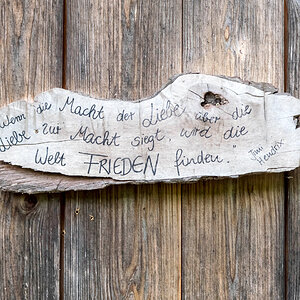 "Wenn die Macht der Liebe über die
Liebe zur Macht siegt, wird die
Welt FRIEDEN finden."
Jimi
Hendrix